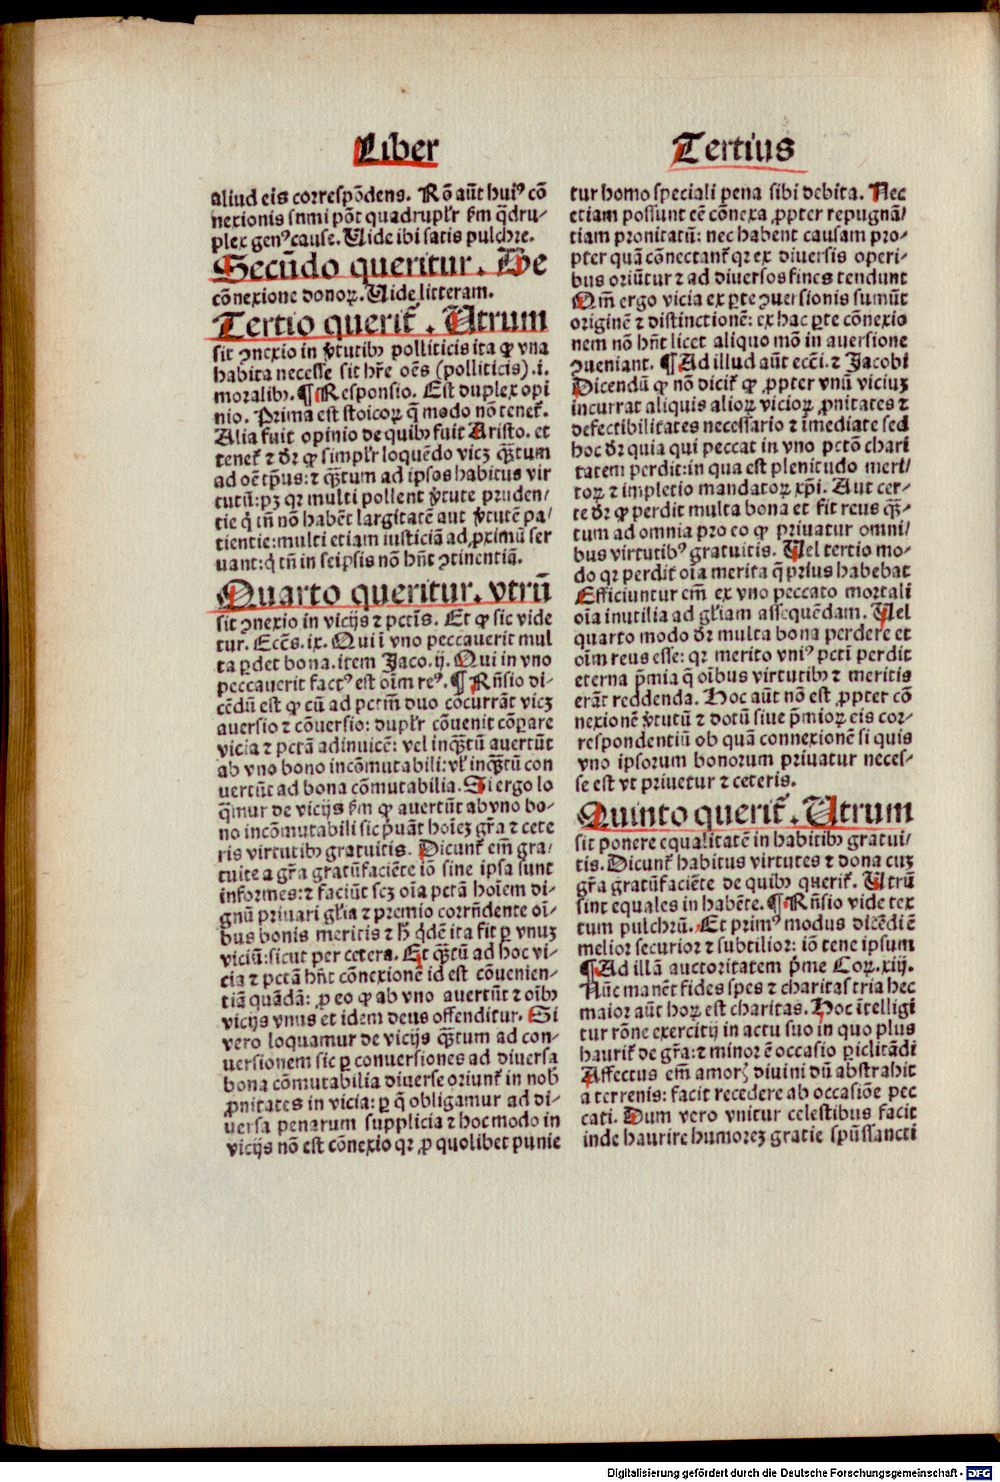 Liber
Tertius
aliud eis correspōdens. Rō aūt huiꝰ cō
nexionis sumi pōt quadruplr̄ ẜm q̄dru-
plex genꝰ cause. Uide ibi satis pulchre.
Secūdo queritur. De
cōnexione donoꝝ. Uide litteram.
Tertio querit᷑. Utrum
sit ꝯnexio in v̄tutibꝫ polliticis ita ꝙ vna
habita necesse sit hr̄e oēs (polliticis).i.
moralibꝫ. ¶ Responsio. Est duplex opi
nio. Prima est stoicoꝝ q̄ modo nō tenet᷑.
Alia fuit opinio de quibꝫ fuit Aristo. et
tenet᷑ ⁊ dr̄ ꝙ simplr̄ loquēdo vicꝫ q̄ꝫtum
ad oēt̄pus: ⁊ q̄ꝫtum ad ipsos habitus vir
tutū: pꝫ qꝛ multi pollent v̄tute pruden/
tie q̇ tn̄ nō habēt largitatē aut v̄tutē pa/
tientie: multi etiam iusticiā ad ꝓximū ser
uant: q̇ tn̄ in seipsis nō hn̄t ꝯtinentiā.
Quarto queritur. vtrū
sit ꝯnexio in vicijs ⁊ pctīs. Et ꝙ sic vide
tur. Eccēs. ix. Qui ī vno peccauerit mul
ta ꝑdet bona. item Jaco. ij. Qui in vno
peccauerit factꝰ est oīm reꝰ. ¶ Rn̄sio di-
cēdū est ꝙ cū ad pctm̄ duo cōcurrāt vicꝫ
auersio ⁊ cōuersio: duplr̄ cōuenit cōꝑare
vicia ⁊ pctā adinuicē: vel inq̄ꝫtū auertūt
ab vno bono incōmutabili: vl̓ inq̄ꝫtū con
uertūt ad bona cōmutabilia. Si ergo lo
q̄mur de vicijs ẜm ꝙ auertūt ab vno bo-
no incōmutabili sic p̄uāt hoīeꝫ gr̄a ⁊ cete
ris virtutibꝫ gratuitis. Dicunt᷑ em̄ gra/
tuite a gr̄a gratūfaciēte iō sine ipsa sunt
informes: ⁊ faciūt scꝫ oīa pctā hoīem di-
gnū priuari gl̓ia ⁊ premio corrn̄dente oī-
bus bonis meritis ⁊ ħ q̇dē ita fit ꝑ vnuꝫ
viciū: sicut per cetera. Et q̄ꝫtū ad hoc vi-
cia ⁊ pctā hn̄t cōnexionē id est cōuenien-
tiā quādā: ꝓ eo ꝙ ab vno auertūt ⁊ oībꝫ
vicijs vnus et idem deus offenditur. Si
vero loquamur de vicijs q̄ꝫtum ad con-
uersionem sic ꝑ conuersiones ad diuersa
bona cōmutabilia diuerse oriunt᷑ in nob̄
ꝓnitates in vicia: ꝑ q̄ obligamur ad di-
uersa penarum supplicia ⁊ hoc modo in
vicijs nō est cōnexio qꝛ ꝓ quolibet punie
tur homo speciali pena sibi debita. Nec
etiam possunt eē cōnexa ꝓpter repugnā/
tiam pronitatū: nec habent causam pro-
pter quā cōnectant᷑ qꝛ ex diuersis operi-
bus oriūtur ⁊ ad diuersos fines tendunt
Qm̄ ergo vicia ex ꝑte ꝯuersionis sumūt
originē ⁊ distinctionē: ex hac ꝑte cōnexio
nem nō hn̄t licet aliquo mō in auersione
ꝯueniant. ¶ Ad illud aūt eccēi. ⁊ Jacobi
Dicendū ꝙ nō dicit᷑ ꝙ ꝓpter vnū viciuꝫ
incurrat aliquis alioꝝ vicioꝝ ꝓnitates ⁊
defectibilitates necessario ⁊ īmediate sed
hoc dr̄ quia qui peccat in vno pctō chari
tatem perdit: in qua est plenitudo meri/
toꝝ ⁊ impletio mandatoꝝ xp̄i. Aut cer-
te dr̄ ꝙ perdit multa bona et fit reus q̄ꝫ-
tum ad omnia pro eo ꝙ priuatur omni/
bus virtutibꝰ gratuitis. Uel tertio mo-
do qꝛ perdit᷑ oīa merita q̄ prius habebat
Efficiuntur em̄ ex vno peccato mortali
oīa inutilia ad gl̓iam assequēdam. Uel
quarto modo dr̄ multa bona perdere et
oīm reus esse: qꝛ merito vniꝰ pcti perdit
eterna p̄mia q̄ oībus virtutibꝫ ⁊ meritis
erāt reddenda. Hoc aūt nō est ꝓpter cō
nexionē v̄tutū ⁊ dotū siue p̄mioꝝ eis cor-
respondentiū ob quā connexionē si quis
vno ipsorum bonorum priuatur neces-
se est vt priuetur ⁊ ceteris.
Quinto querit᷑. Utrum
sit ponere equalitatē in habitibꝫ gratui/
tis. Dicunt᷑ habitus virtutes ⁊ dona cuꝫ
gr̄a gratūfaciēte de quibꝫ querit᷑. Utrū
sint equales in habēte. ¶ Rn̄sio vide tex
tum pulchrū. Et primꝰ modus dicēdi ē
melior securior ⁊ subtilior: iō tene ipsum
¶ Ad illā auctoritatem p̄me Coꝝ. xiij.
Nūc manēt fides spes ⁊ charitas tria hec
maior aūt hoꝝ est charitas. Hoc ītelligi
tur rōne exercitij in actu suo in quo plus
haurit᷑ de gr̄a: ⁊ minor ē occasio ꝑiclitādi
Affectus em̄ amoꝝ diuini dū abstrahit
a terrenis: facit recedere ab occasiōe pec
cati. Dum vero vnitur celestibus facit
inde haurire humoreꝫ gratie spūssancti
Digitalisierung gefördert durch die Deutsche Forschungsgemeinschaft - DFG